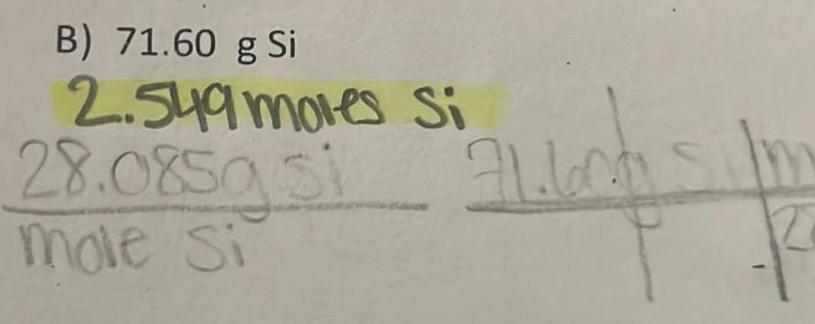 B) 71.60 g Si
2.549 moles Si
28.085g si 71.60g Si m
mole Si 2